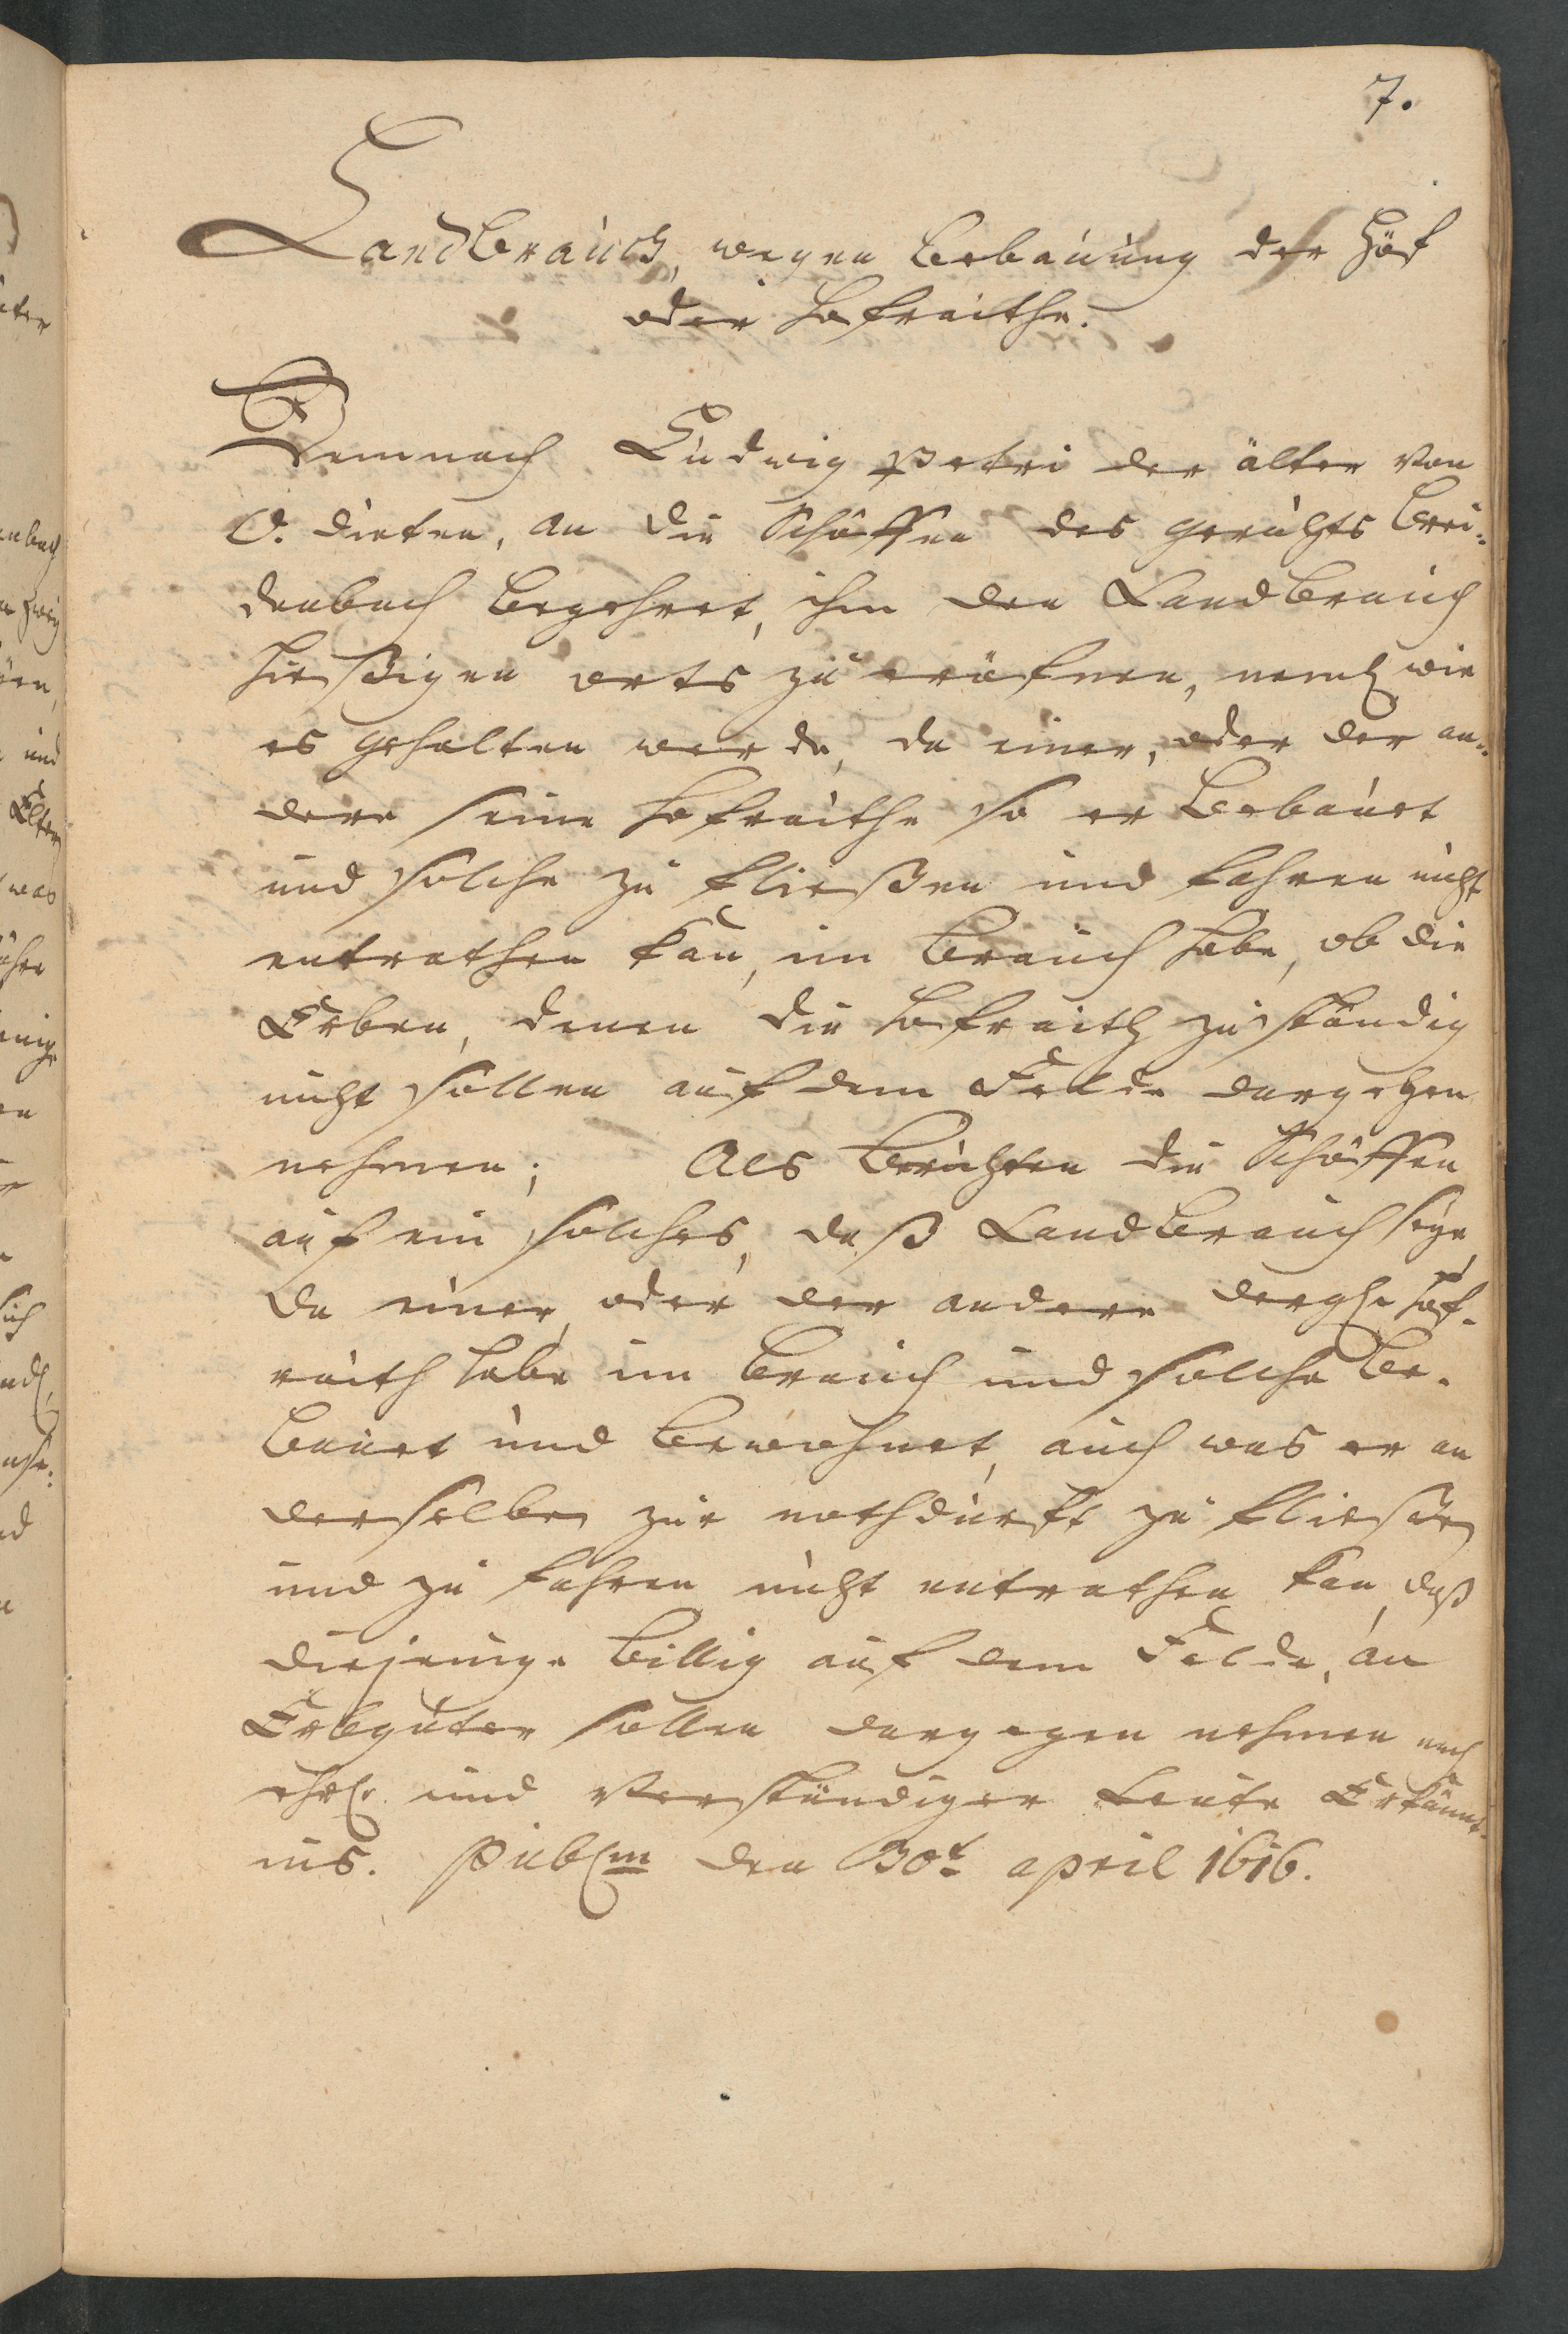 7.
Landbrauch, wegen bebauung der Höf
oder Hofraithe.
Demnach Ludwig Petri der älter von
O. dieten, an die Schöffen des gerichts brei-
denbach begehret, ihm den Landbrauch
hießigen orts zu eröfnen, neml. wie
es gehalten werde, da einer, oder der an-
dere seine Hofraithe so er bebauet
und solche zu fließen und fahren nicht
entrathen kan, im brauch habe, ob die
Erben, denen die Hofraith zuständig
nicht sollen auf dem Felde dargegen
nehmen; Als berichten die Schöffen
auf ein solches, daß Landbrauch seye,
da einer, oder der andere dergl. hof-
raith habe im brauch und solche be-
bauet und bewohnet, auch was er an
derselben zur nothdurfft zu fließen
und zu fahren nicht entrathen kan, daß
diejenige billig auf dem Felde, an
Erbgüter sollen dargegen nehmen nach
ehrl. und verständiger Leute Erkännt-
nis. Publm den 30t april 1616.